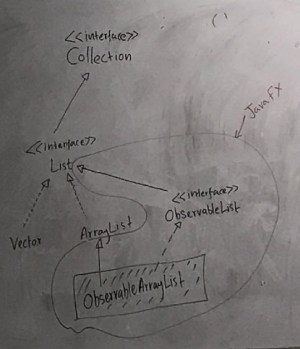 <<interface>>
Collection
JavaFX
<<interface>>
List
<<interface>>
ObservableList
Vector
ArrayList
ObservableArrayList